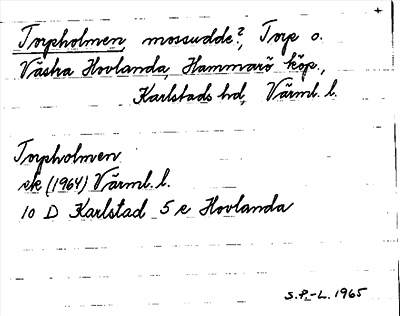 Torpholmen, mossudde?, Torp o.
Västra Hovlanda, Hammarö köp.,
Karlstads hd, Värml. l.
Torpholmen
ek (1964) Värml. l.
10 D Karlstad 5 e Hovlanda
S.P.-L. 1965